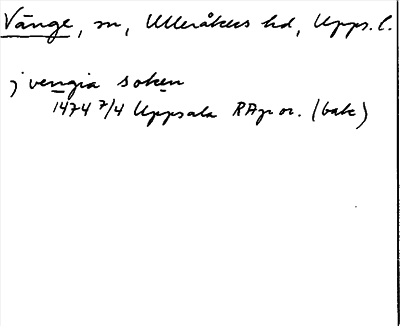 Vänge, sn, Ulleråkers hd, Upps. l.
j vengia soken
1474 7/4 Uppsala RAp or. (bak)